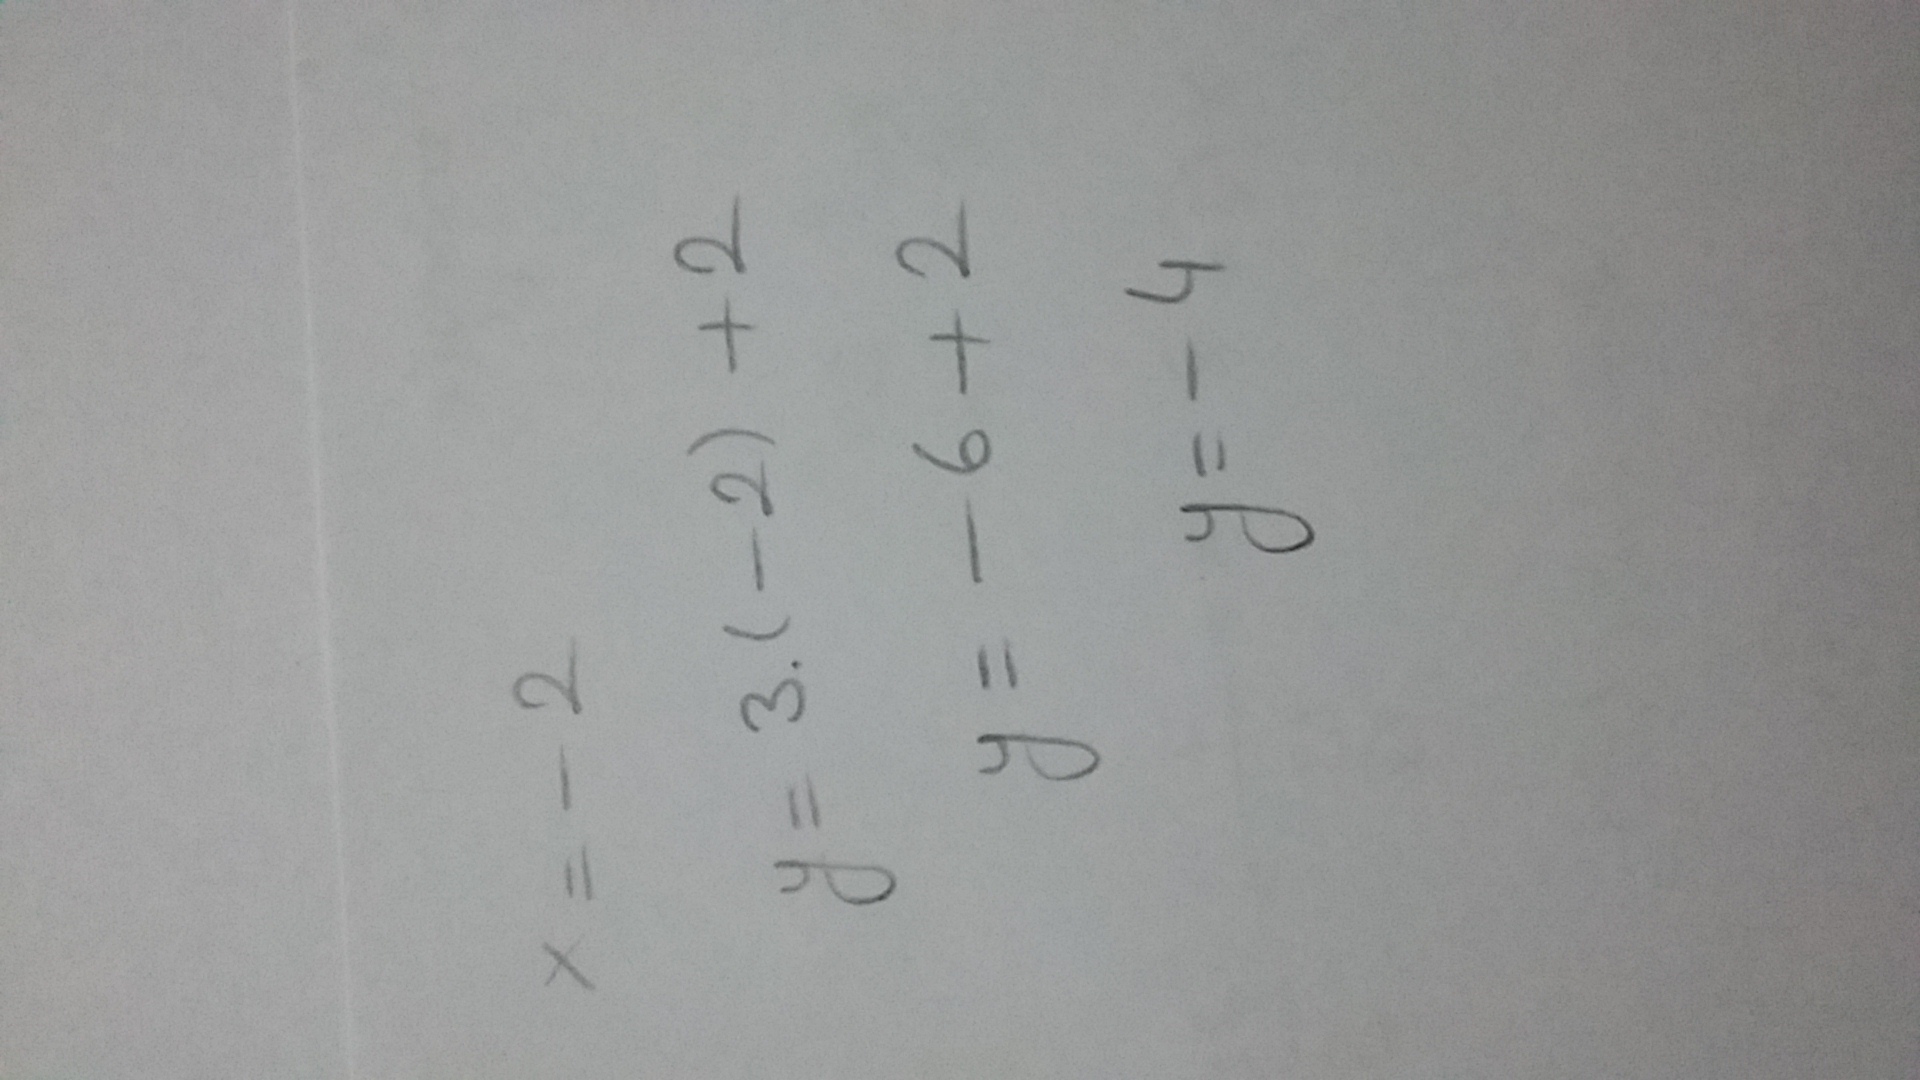 x = - 2
y = 3.(-2) + 2
y = - 6 + 2
y = - 4